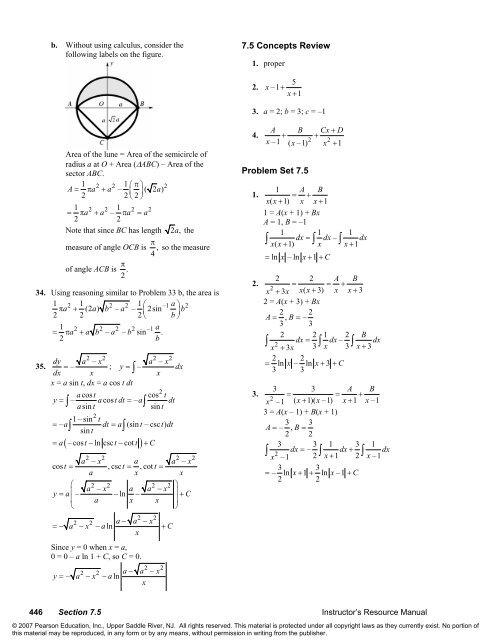 b. Without using calculus, consider the
following labels on the figure.
y
A O a B
a √2a
C
Area of the lune = Area of the semicircle of
radius a at O + Area (ΔABC) – Area of the
sector ABC.
A = 1/2 πa² + a² − 1/2 (π/2)(√2a)²
= 1/2 πa² + a² − 1/2 πa² = a²
Note that since BC has length √2a, the
measure of angle OCB is π/4, so the measure
of angle ACB is π/2.
34. Using reasoning similar to Problem 33 b, the area is
1/2 πa² + 1/2 (2a)√(b² − a²) − 1/2 (2 sin⁻¹ a/b) b²
= 1/2 πa² + a√(b² − a²) − b² sin⁻¹ a/b.
35. dy/dx = −√(a² − x²)/x ; y = ∫ −√(a² − x²)/x dx
x = a sin t, dx = a cos t dt
y = ∫ − (a cos t)/(a sin t) a cos t dt = −a ∫ (cos² t)/(sin t) dt
= −a ∫ (1 − sin² t)/(sin t) dt = a ∫ (sin t − csc t) dt
= a(− cos t − ln|csc t − cot t|) + C
cos t = √(a² − x²)/a, csc t = a/x, cot t = √(a² − x²)/x
y = a(−√(a² − x²)/a − ln|a/x − √(a² − x²)/x|) + C
= −√(a² − x²) − a ln|(a − √(a² − x²))/x| + C
Since y = 0 when x = a,
0 = 0 – a ln 1 + C, so C = 0.
y = −√(a² − x²) − a ln (a − √(a² − x²))/x
7.5 Concepts Review
1. proper
2. x − 1 + 5/(x + 1)
3. a = 2; b = 3; c = –1
4. A/(x − 1) + B/(x − 1)² + (Cx + D)/(x² + 1)
Problem Set 7.5
1. 1/(x(x + 1)) = A/x + B/(x + 1)
1 = A(x + 1) + Bx
A = 1, B = –1
∫ 1/(x(x + 1)) dx = ∫ 1/x dx − ∫ 1/(x + 1) dx
= ln|x| − ln|x + 1| + C
2. 2/(x² + 3x) = 2/(x(x + 3)) = A/x + B/(x + 3)
2 = A(x + 3) + Bx
A = 2/3, B = −2/3
∫ 2/(x² + 3x) dx = 2/3 ∫ 1/x dx − 2/3 ∫ B/(x + 3) dx
= 2/3 ln|x| − 2/3 ln|x + 3| + C
3. 3/(x² − 1) = 3/((x + 1)(x − 1)) = A/(x + 1) + B/(x − 1)
3 = A(x – 1) + B(x + 1)
A = −3/2, B = 3/2
∫ 3/(x² − 1) dx = −3/2 ∫ 1/(x + 1) dx + 3/2 ∫ 1/(x − 1) dx
= −3/2 ln|x + 1| + 3/2 ln|x − 1| + C
446 Section 7.5 Instructor’s Resource Manual
© 2007 Pearson Education, Inc., Upper Saddle River, NJ. All rights reserved. This material is protected under all copyright laws as they currently exist. No portion of
this material may be reproduced, in any form or by any means, without permission in writing from the publisher.